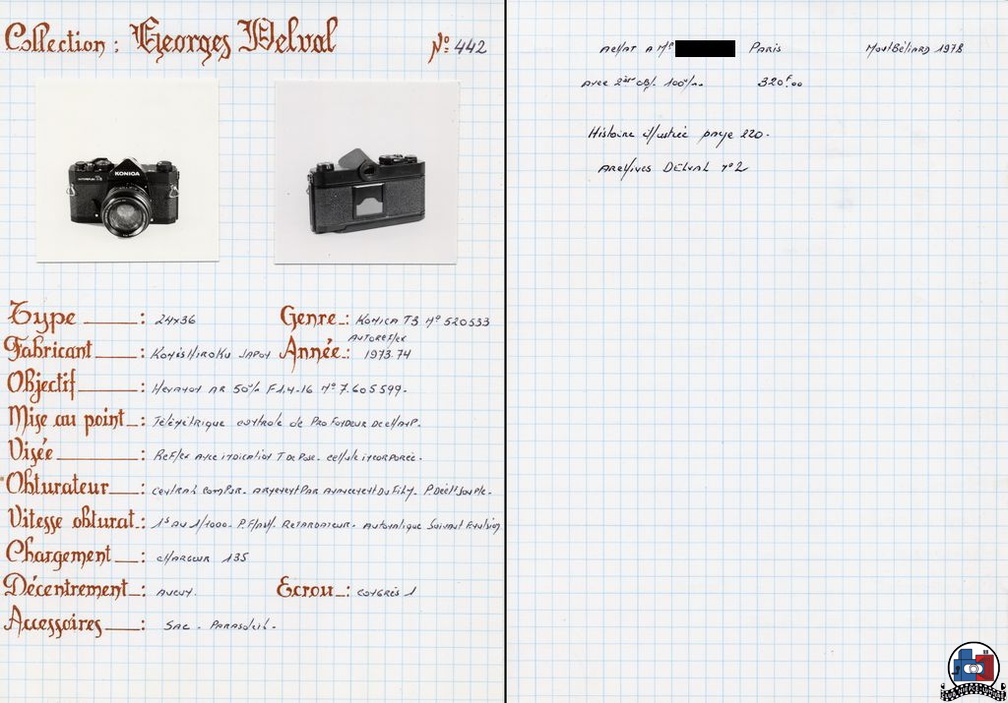 Collection : Georges Delval
N° 442
KONICA
Type : 24x36
Genre : Konica T3 N° 520533
Autoreflex
Fabricant : Konishiroku Japon
Année : 1973.74
Objectif : Hexanon AR 50m/m F1.4-16 N° 7.605599.
Mise au point : Télémétrique controle de Profondeur de champ.
Visée : Reflex avec indication T de Pose. cellule incorporée.
Obturateur : central Compur. armement Par avancement Du Film. P. Déclt Souple.
Vitesse obturat. : 1s au 1/1000. P. Flash. Retardateur. Automatique Suivant Emulsion
Chargement : chargeur 135
Décentrement : aucun.
Ecrou : congrès 1
Accessoires : Sac - Parasoleil.
Achat a Mr Paris Montbéliard 1978
Avec 2ème obj. 100m/m. 320F,00
Histoire illustrée page 220.
Archives Delval n°2